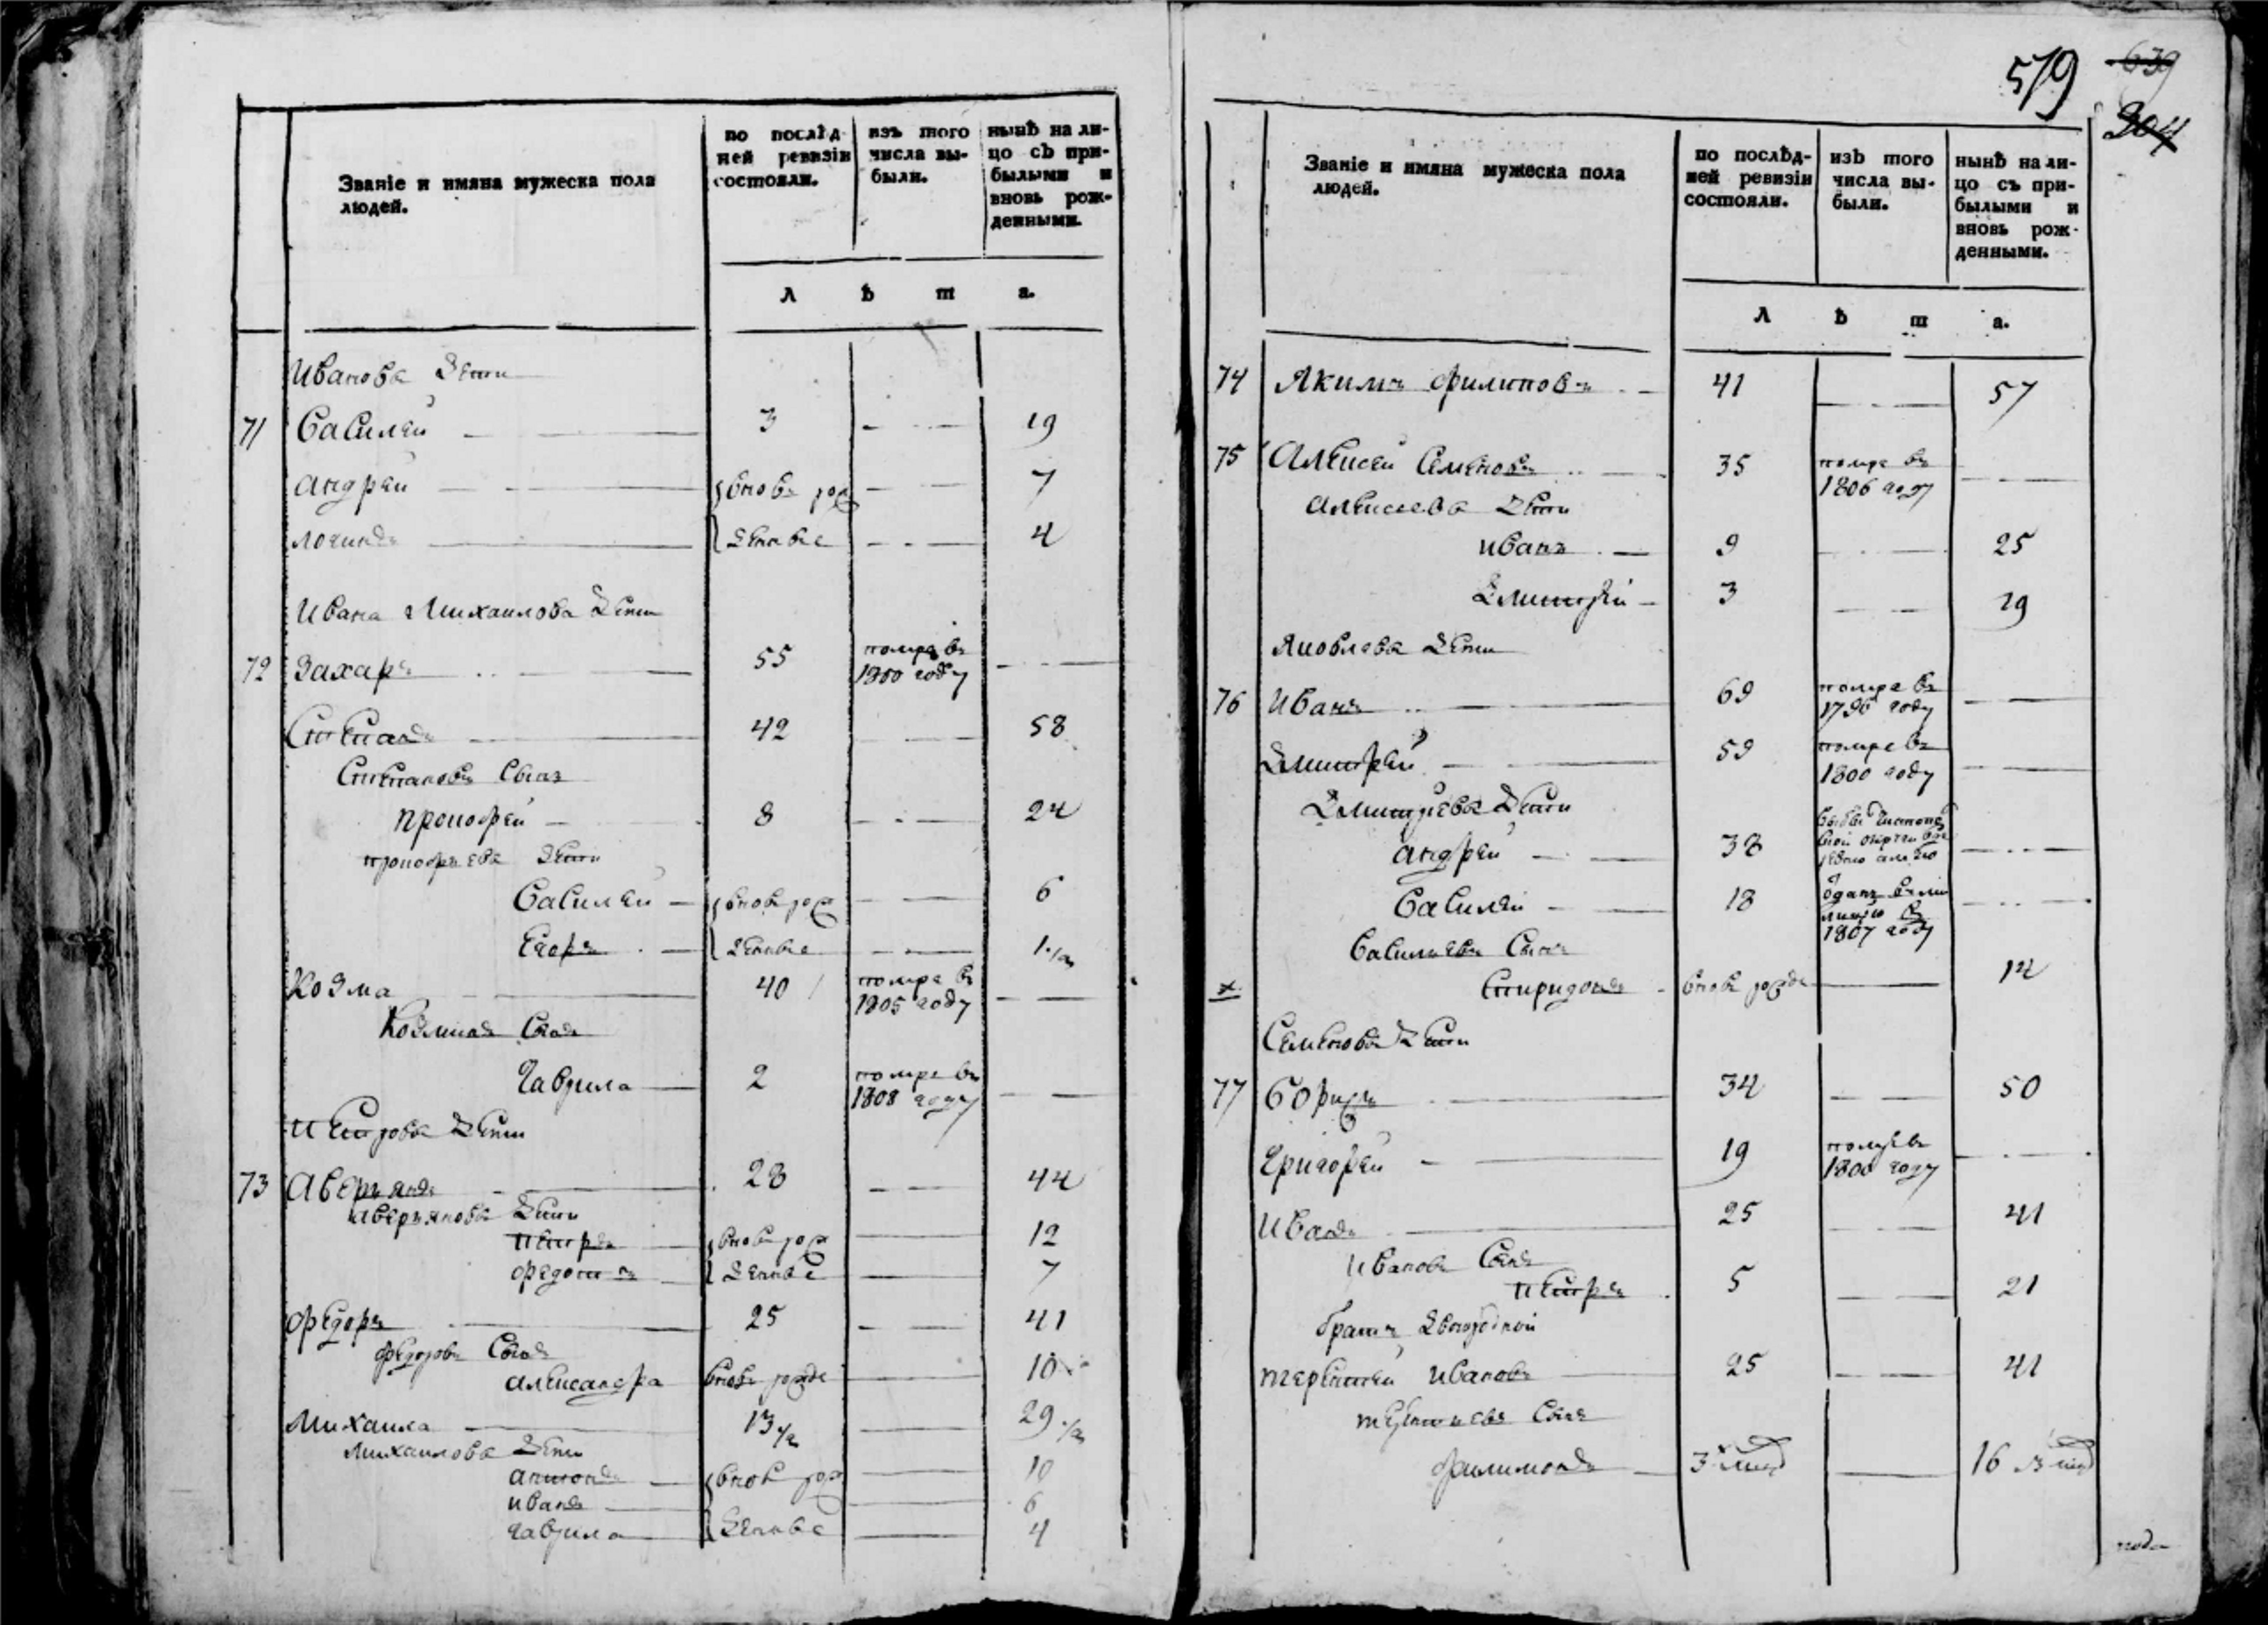 Званіе и имяна мужеска пола людей.
по послѣдней ревизіи состояли.
изъ того числа выбыли.
нынѣ на лицо съ прибылыми и вновь рожденными.
л ѣ т а.
Иванова Дети
71 Василей 3 19
Андрей вновь рож 7
Логинъ денные 4
Ивана Михаилова Дети
72 Захаръ 55 помре въ 1800 году
Степанъ 42 58
Степановъ Сынъ
Прокофей 8 24
Прокофьева Дети
Василей вновь рож 6
Егоръ 1
Козма 40 помре въ 1805 году
Козминъ Сынъ
Гаврила 2 помре въ 1808 году
Петрова Дети
73 Аверьянъ 28 44
Аверьянова Дети
Петръ вновь рож 12
Федотъ 7
Федоръ 25 41
Федоровъ Сынъ
Александра вновь рожде 10
Михаила 13 29
Михаилова Дети
Антонъ вновь рож 10
Иванъ 6
Гаврила 4
579
639
304
Званіе и имяна мужеска пола людей.
по послѣдней ревизіи состояли.
изъ того числа выбыли.
нынѣ на лицо съ прибылыми и вновь рожденными.
л ѣ т а.
74 Якимъ Филиповъ 41 57
75 Алексей Семеновъ 35 помре въ 1806 году
Алексеева Дети
Иванъ 9 25
Дмитрей 3 19
Яковлева Дети
76 Иванъ 69 помре въ 1796 году
Дмитрей 59 помре въ 1800 году
Дмитриева Дети
Андрей 38
Василей 18 отданъ въ милицию въ 1807 году
Васильевъ Сынъ
Спиридонъ вновь рожде 14
Семенова Дети
77 Борисъ 34 50
Григорей 19 помре въ 1800 году
Иванъ 25 41
Ивановъ Сынъ
Петръ 5 21
братъ Двоюродной
Терентей Ивановъ 25 41
Терентьевъ Сынъ
Филимонъ 3 16